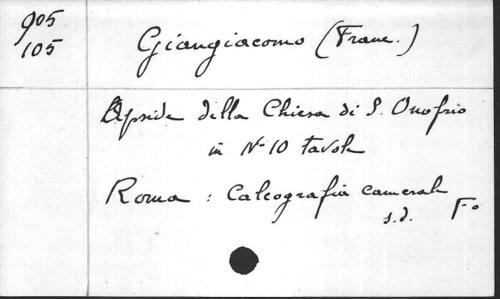 905
105
Giangiacomo (Franc.)
Apside della Chiesa di S. Onofrio
in No 10 tavole
Roma : Calcografia camerale
s.d. Fo